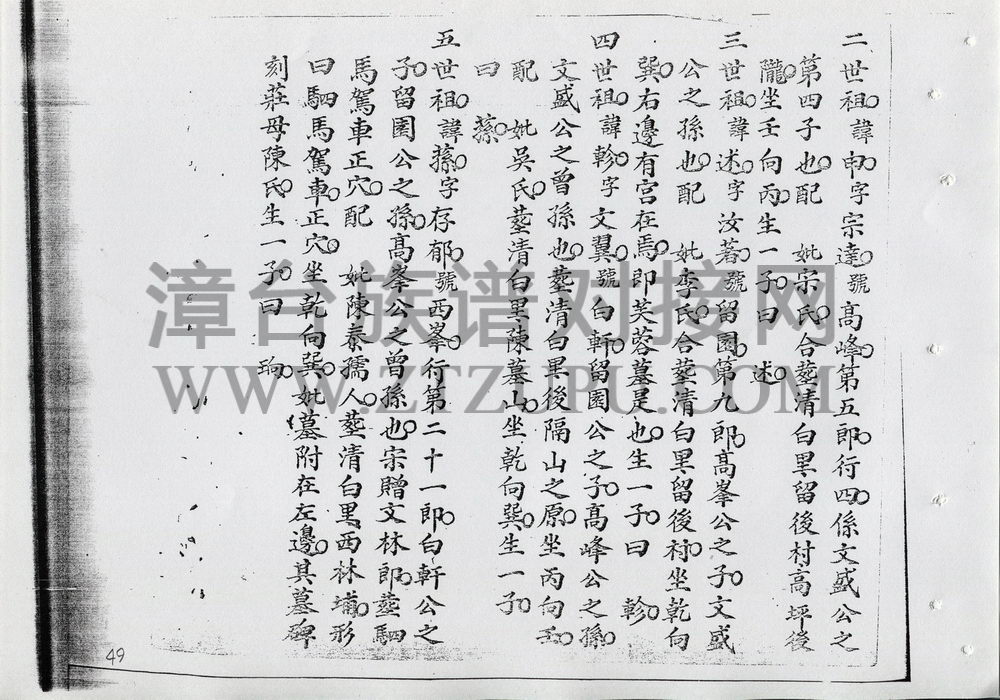 二世祖諱申字宗達號高峰第五郎行四係文盛公之
第四子也配 妣宗氏合塟清白里留後村高坪後
隴坐壬向丙生一子曰 述
三世祖諱述字汝著號留園第九郎高峯公之子文盛
公之孫也配 妣李氏合塟清白里留後村坐乾向
巽右邊有宫在焉即芙蓉墓是也生一子曰 軫
四世祖諱軫字文翼號白軒留園公之子高峰公之孫
文盛公之曾孫也塟清白里後隔山之原坐丙向壬
配 妣吳氏塟清白里陳墓山坐乾向巽生一子
曰 蓀
五世祖諱蓀字存郁號西峯行第二十一郎白軒公之
子留園公之孫高峯公之曾孫也宗贈文林郎塟駟
馬駕車正穴配 妣陳泰孺人塟清白里西林埔形
曰駟馬駕車正穴坐乾向巽妣墓附在左邊其墓碑
刻莊母陳氏生一子曰 珣
49
漳台族谱对接网
WWW.ZTZUPU.COM